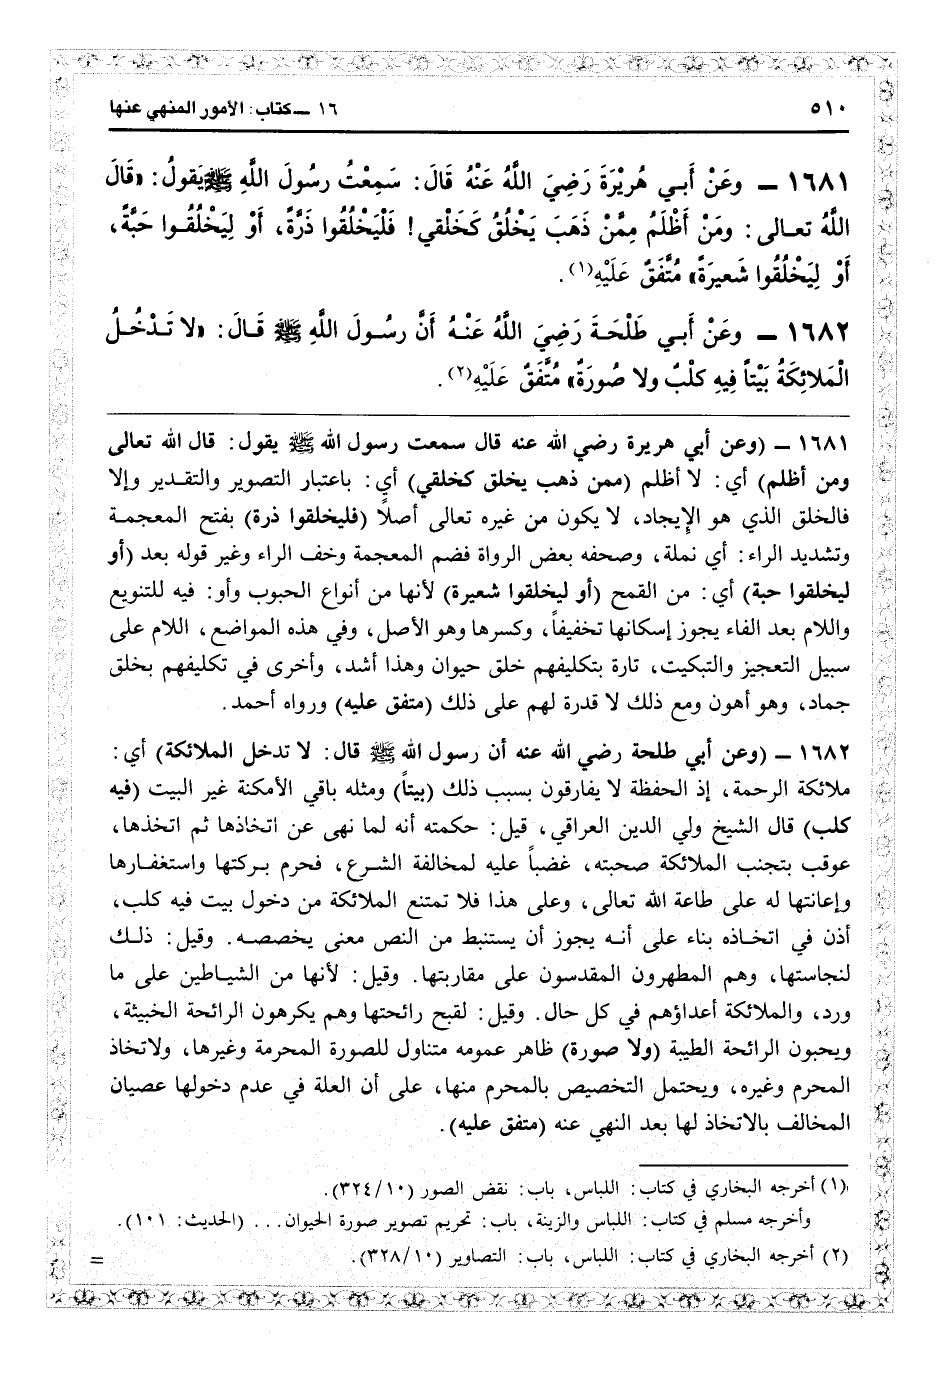 ٥١٠
١٦ ــ كتاب: الأمور المنهي عنها
١٦٨١ ــ وعَنْ أَبـي هُريْرَةَ رَضِيَ اللَّهُ عَنْهُ قَالَ: سَمِعْتُ رسُولَ اللَّهِ ﷺ يَقولُ: «قَالَ
اللَّهُ تعـالى: ومَنْ أَظْلَمُ مِمَّنْ ذَهَبَ يَخْلُقُ كَخَلْقي! فَلْيَخْلُقُوا ذَرَّةً، أَوْ لِيَخْلُقُـوا حَبَّةً،
أَوْ لِيَخْلُقُوا شَعيرَةً» مُتَّفَقٌ عَلَيْهِ(١).
١٦٨٢ ــ وعَنْ أَبـي طَلْحَةَ رَضِيَ اللَّهُ عَنْـهُ أَنَّ رسُـولَ اللَّهِ ﷺ قَـالَ: «لا تَـدْخُـلُ
الْمَلائِكَةُ بَيْتاً فِيهِ كلْبٌ ولا صُورَةٌ» مُتَّفَقٌ عَلَيْهِ(٢).
١٦٨١ ــ (وعن أبي هريرة رضي الله عنه قال سمعت رسول الله ﷺ يقول: قال الله تعالى
ومن أظلم) أي: لا أظلم (ممن ذهب يخلق كخلقي) أي: باعتبار التصوير والتقـدير وإلا
فالخلق الذي هو الإيجاد، لا يكون من غيره تعالى أصلاً (فليخلقوا ذرة) بفتح المعجمـة
وتشديد الراء: أي نملة، وصحفه بعض الرواة فضم المعجمة وخف الراء وغير قوله بعد (أو
ليخلقوا حبة) أي: من القمح (أو ليخلقوا شعيرة) لأنها من أنواع الحبوب وأو: فيه للتنويع
واللام بعد الفاء يجوز إسكانها تخفيفاً، وكسرها وهو الأصل، وفي هذه المواضع، اللام على
سبيل التعجيز والتبكيت، تارة بتكليفهم خلق حيوان وهذا أشد، وأخرى في تكليفهم بخلق
جماد، وهو أهون ومع ذلك لا قدرة لهم على ذلك (متفق عليه) ورواه أحمد.
١٦٨٢ ــ (وعن أبي طلحة رضي الله عنه أن رسول الله ﷺ قال: لا تدخل الملائكة) أي:
ملائكة الرحمة، إذ الحفظة لا يفارقون بسبب ذلك (بيتاً) ومثله باقي الأمكنة غير البيت (فيه
كلب) قال الشيخ ولي الدين العراقي، قيل: حكمته أنه لما نهى عن اتخاذها ثم اتخذها،
عوقب بتجنب الملائكة صحبته، غضباً عليه لمخالفة الشـرع، فحرم بـركتها واستغفـارها
وإعانتها له على طاعة الله تعالى، وعلى هذا فلا تمتنع الملائكة من دخول بيت فيه كلب،
أذن في اتخـاذه بناء على أنـه يجوز أن يستنبط من النص معنى يخصصـه. وقيل: ذلـك
لنجاستها، وهم المطهرون المقدسون على مقاربتها. وقيل: لأنها من الشيـاطين على ما
ورد، والملائكة أعداؤهم في كل حال. وقيل: لقبح رائحتها وهم يكرهون الرائحة الخبيثة،
ويحبون الرائحة الطيبة (ولا صورة) ظاهر عمومه متناول للصورة المحرمة وغيرها، ولاتخاذ
المحرم وغيره، ويحتمل التخصيص بالمحرم منها، على أن العلة في عدم دخولها عصيان
المخالف بالاتخاذ لها بعد النهي عنه (متفق عليه).
(١) أخرجه البخاري في كتاب: اللباس، باب: نقض الصور (٣٢٤/١٠).
وأخرجه مسلم في كتاب: اللباس والزينة، باب: تحريم تصوير صورة الحيوان... (الحديث: ١٠١).
(٢) أخرجه البخاري في كتاب: اللباس، باب: التصاوير (٣٢٨/١٠).
=